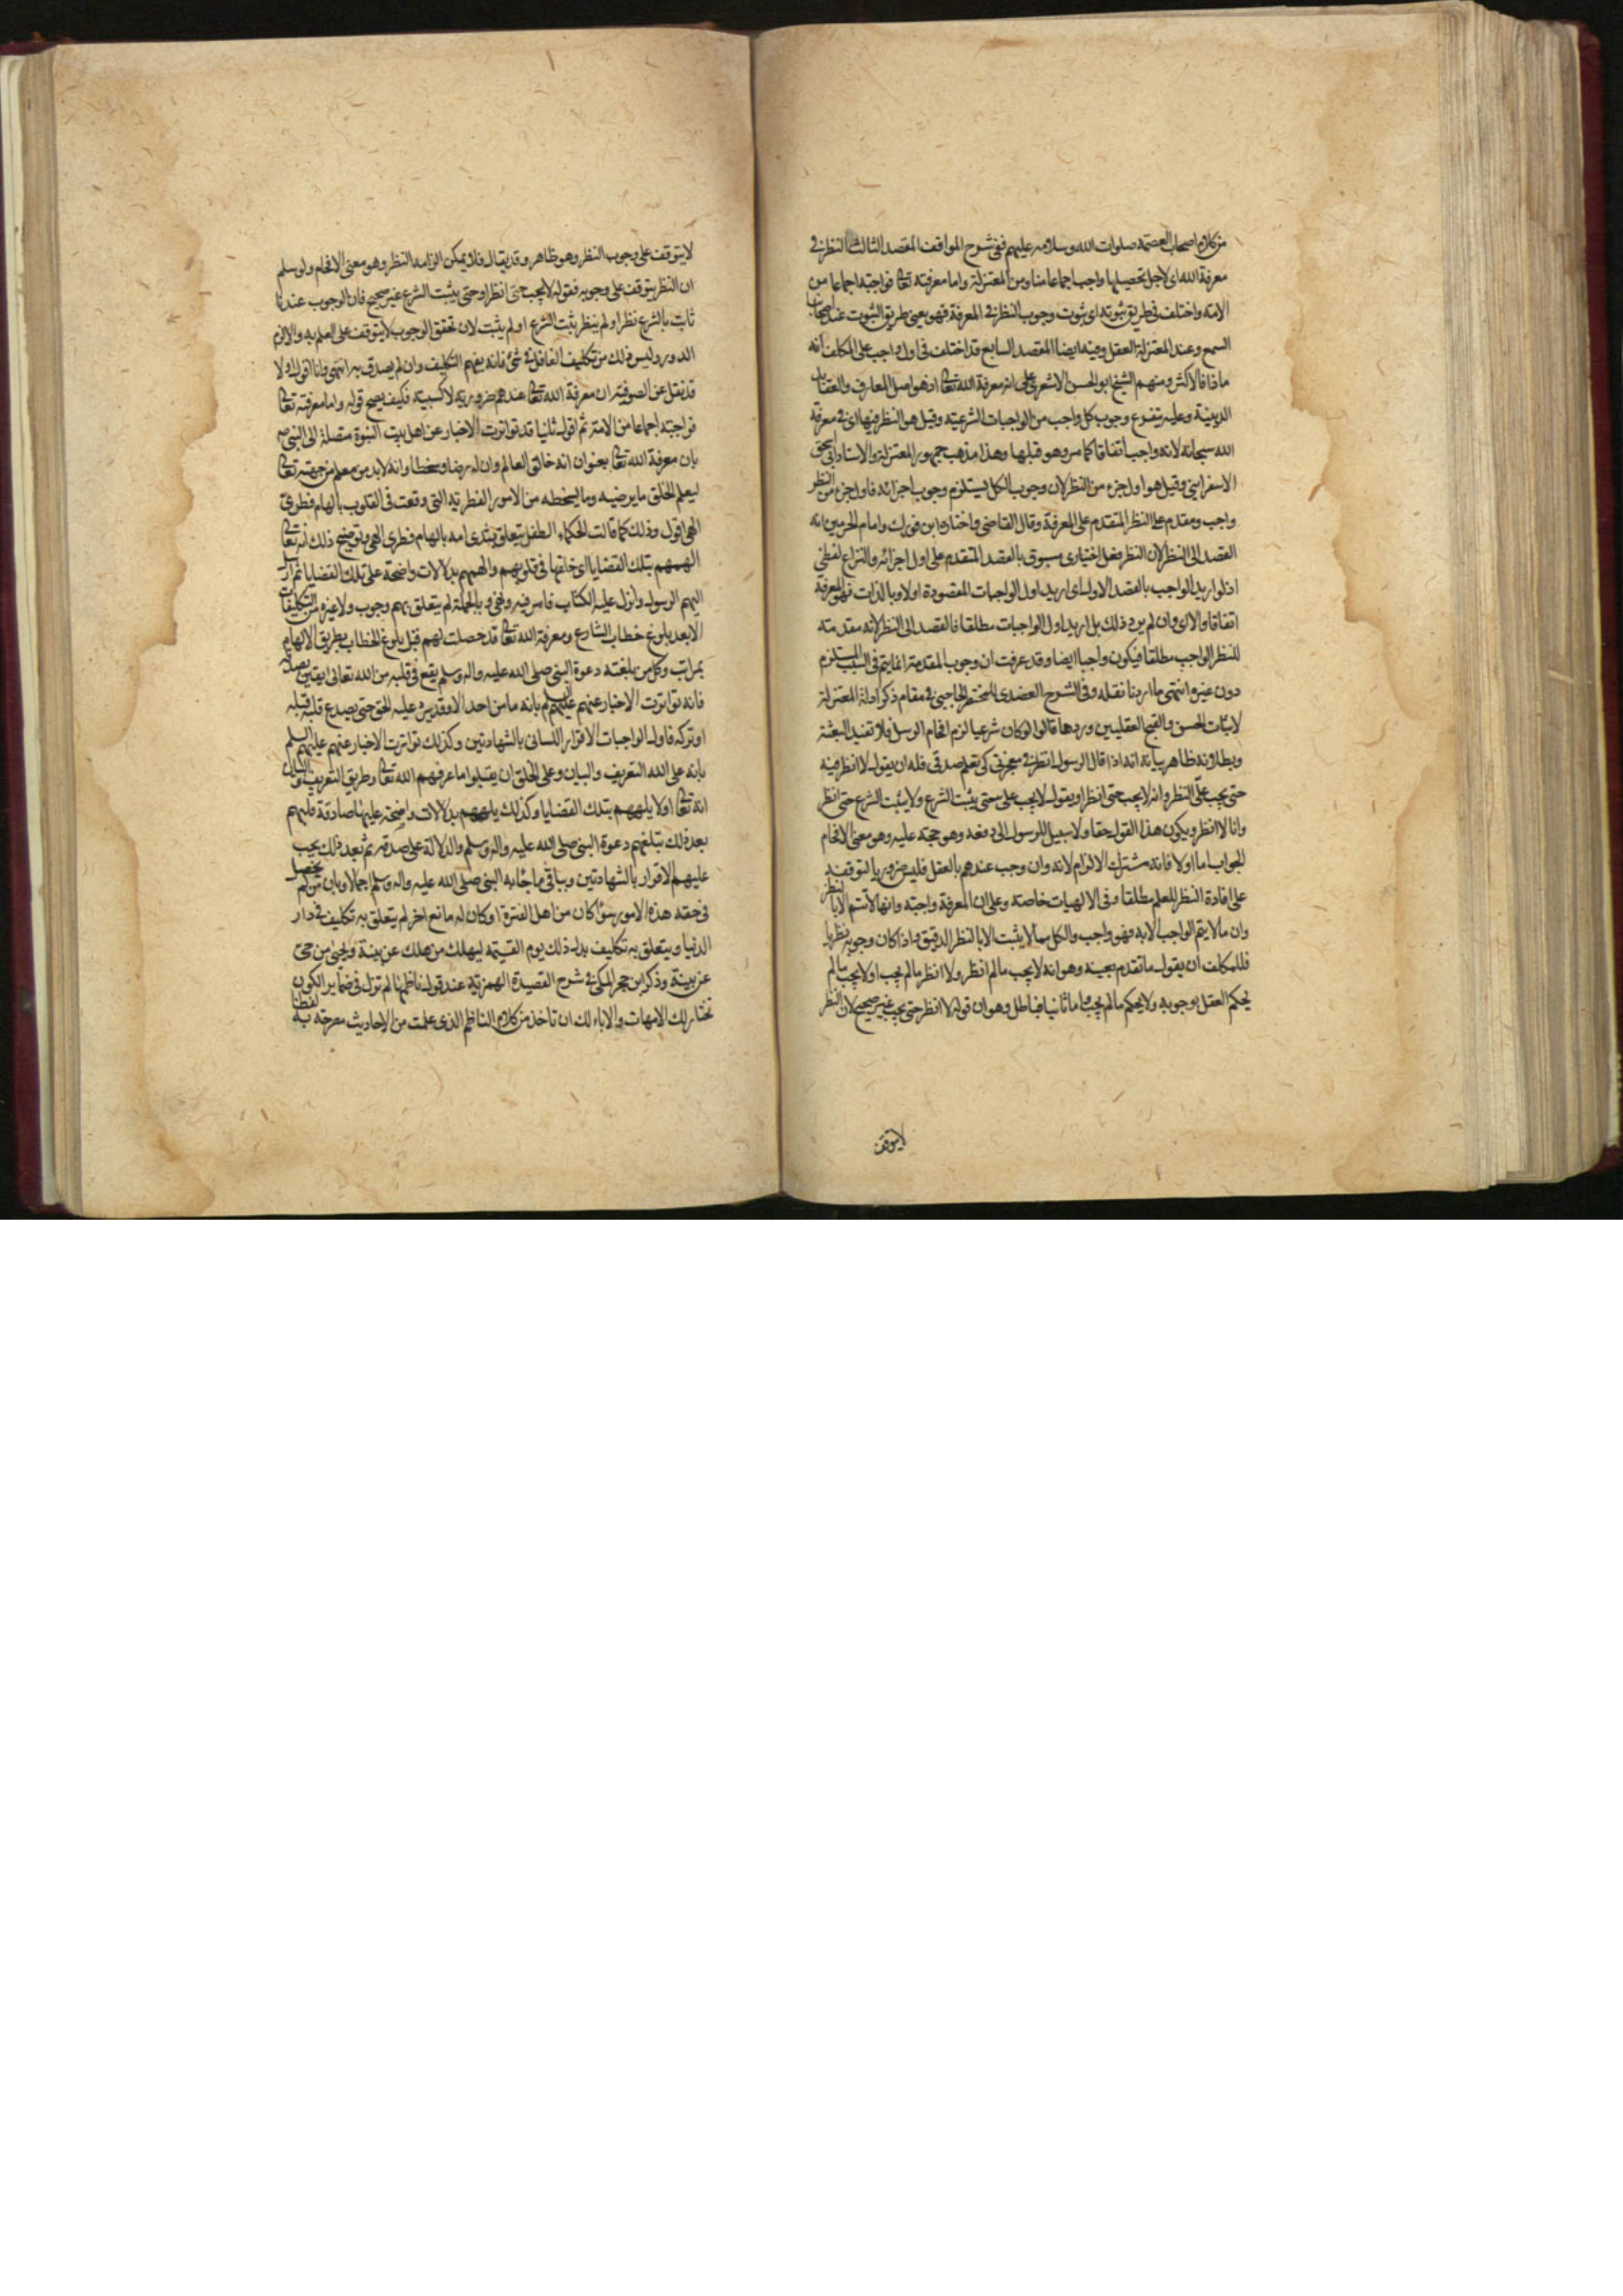 من كلام اصحاب العصمة صلوات الله وسلامه عليهم ففى شرح المواقف المقصد الثالث النظر فى
معرفة الله اى لاجل تحصيلها واجب اجماعا منا ومن المعتزلة واما معرفته تعالى فواجبة اجماعا من
الامة واختلف فى طريق ثبوته اى ثبوت وجوب النظر فى المعرفة فهو يعنى طريق الثبوت عند اصحابنا
السمع وعند المعتزلة العقل وفيه ايضا المقصد السابع قد اختلف فى اول واجب على المكلف انه
ماذا فالاكثر ومنهم الشيخ ابو الحسن الاشعرى على انه معرفة الله تعالى اذ هو اصل المعارف والعقايد
الدينية وعليه يتفرع وجوب كل واجب من الواجبات الشرعية وقيل هو النظر فيها اى فى معرفة
الله سبحانه لانه واجب اتفاقا كما مر وهو قبلها وهذا مذهب جمهور المعتزلة والاستاد ابى اسحق
الاسفراينى وقيل هو اول جزء من النظر لان وجوب الكل يستلزم وجوب اجزائه فاول جزء من النظر
واجب ومقدم على النظر المتقدم على المعرفة وقال القاضى واختاره ابن فورك وامام الحرمين انه
القصد الى النظر لان النظر فعل اختيارى مسبوق بالقصد المتقدم على اول اجزائه والنزاع لفظى
اذ لو اريد الواجب بالقصد الاول اى اريد اول الواجبات المقصودة اولا وبالذات فهو المعرفة
اتفاقا والا اى وان لم يرد ذلك بل اريد اول الواجبات مطلقا فالقصد الى النظر لانه مقدمته
للنظر الواجب مطلقا فيكون واجبا ايضا وقد عرفت ان وجوب المقدمة انما يتم فى السبب المستلزم
دون غيره انتهى ما اردنا نقله وفى الشرح العضدى للمختصر الحاجبى فى مقام ذكر ادلة المعتزلة
لاثبات الحسن والقبح العقليين وردها قالوا لو كان شرعيا لزم افحام الرسل فلا تفيد البعثة
وبطلانه ظاهر بيانه انه اذا قال الرسول انظر فى معجزتى كى تعلم صدقى فله ان يقول لا انظر فيه
حتى يجب على النظر وانه لا يجب حتى انظر او يقول لا يجب على حتى يثبت الشرع ولا يثبت الشرع حتى انظر
وانا لا انظر ويكون هذا القول حقا ولا سبيل للرسول الى دفعه وهو حجة عليه وهو معنى الافحام
الجواب اما اولا فانه مشترك الالزام لانه وان وجب عندهم بالعقل فليس ضروريا لتوقفه
على افادة النظر للعلم مطلقا وفى الالهيات خاصة وعلى ان المعرفة واجبة وانها لا تتم الا بالنظر
وان ما لا يتم الواجب الا به فهو واجب والكل مما لا يثبت الا بالنظر الدقيق واذا كان وجوبه نظريا
فللمكلف ان يقول ما تقدم بعينه وهو انه لا يجب ما لم انظر ولا انظر ما لم يجب او لا يجب ما لم
يحكم العقل بوجوبه ولا يحكم ما لم يجب واما ثانيا فباطل وهو ان قوله لا انظر حتى يجب غير صحيح لان النظر
لا يتوقف
لا يتوقف على وجوب النظر وهو ظاهر وقد يقال فلا يمكن الزامه النظر وهو معنى الافحام ولو سلم
ان النظر يتوقف على وجوبه فقوله لا يجب حتى انظر او حتى يثبت الشرع غير صحيح فان الوجوب عندنا
ثابت بالشرع نظر او لم ينظر ثبت الشرع او لم يثبت لان تحقق الوجوب لا يتوقف على العلم به والا لزم
الدور وليس ذلك من تكليف الغافل فى شئ فانه يفهم التكليف وان لم يصدق به انتهى وانا اقول اولا
قد نقل عن الصوفية ان معرفة الله تعالى عندهم ضرورية لا كسبية فكيف يصح قوله واما معرفته تعالى
فواجبة اجماعا من الامة ثم اقول ثانيا قد تواترت الاخبار عن اهل بيت النبوة متصلة الى النبى ص
بان معرفة الله تعالى بعنوان انه خالق العالم وان له رضا وسخطا وانه لابد من معلم من جهته تعالى
ليعلم الخلق ما يرضيه وما يسخطه من الامور الفطرية التى وقعت فى القلوب بالهام فطرى
الهى اقول وذلك كما قالت الحكماء الطفل يتعلق بثدى امه بالهام فطرى الهى وتوضيح ذلك انه تعالى
الهمهم بتلك القضايا اى خلقها فى قلوبهم والهمهم بدلالات واضحة على تلك القضايا ثم ارسل
اليهم الرسول وانزل عليه الكتاب فامر فيه ونهى وبالجملة لم يتعلق بهم وجوب ولا غيره من التكليفات
الا بعد بلوغ خطاب الشارع ومعرفة الله تعالى قد حصلت لهم قبل بلوغ الخطاب بطريق الالهام
بمراتب وكل من بلغته دعوة النبى صلى الله عليه واله وسلم يقع فى قلبه من الله تعالى يقين بصدقه
فانه تواترت الاخبار عنهم عليهم السلم بانه ما من احد الا وقد يرد عليه الحق حتى يصدع قلبه قبله
او تركه فاول الواجبات الاقرار اللسانى بالشهادتين وكذلك تواترت الاخبار عنهم عليهم السلم
بانه على الله التعريف والبيان وعلى الخلق ان يقبلوا ما عرفهم الله تعالى وطريق التعريف والبيان
انه تعالى اولا يلهمهم بتلك القضايا وكذلك يلهمهم بدلالات واضحة عليها صادقة فلهم
بعد ذلك تبلغهم دعوة النبى صلى الله عليه واله وسلم والدلالة على صدقه ثم بعد ذلك يجب
عليهم الاقرار بالشهادتين وبباقى ما جاء به النبى صلى الله عليه واله وسلم اجمالا وبان من لم يحصل
فى حقه هذه الامور سواء كان من اهل الفترة او كان له مانع اخر لم يتعلق به تكليف فى دار
الدنيا ويتعلق به تكليف بدل ذلك يوم القيمة ليهلك من هلك عن بينة ويحيى من حى
عن بينة وذكر ابن حجر المكى فى شرح القصيدة الهمزية عند قول ناظمها لم تزل فى ضماير الكون
تختار لك الامهات والاباء لك ان تاخذ من كلام الناظم الذى علمت من الاحاديث مصرحة به لفظا